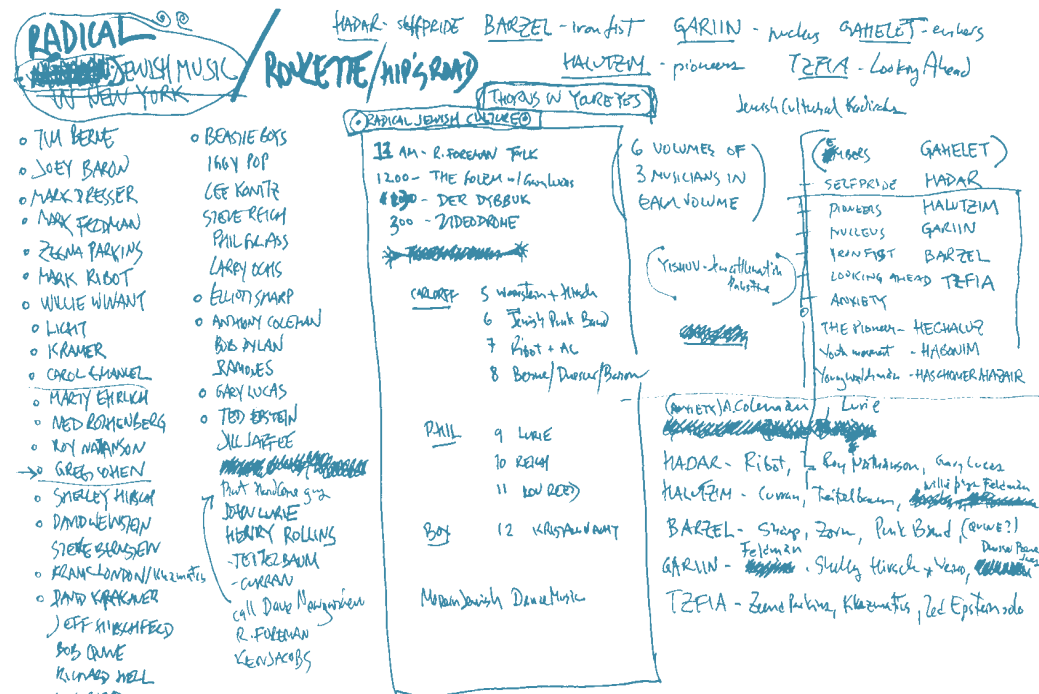 RADICAL
JEWISH MUSIC
IN NEW YORK
ROULETTE/HIP'S ROAD
HADAR - selfpride BARZEL - iron fist GARIIN - nucleus GAHELET - embers
HALUTZIM - pioneers TZFIA - Looking Ahead
THORNS IN YOUR EYES
Jewish Cultural Radicals
TIM BERNE
JOEY BARON
MARK DRESSER
MARK FELDMAN
ZEENA PARKINS
MARK RIBOT
WILLIE WINANT
LICHT
KRAMER
CAROL EMANUEL
MARTY EHRLICH
NED ROTHENBERG
ROY NATANSON
GREG COHEN
SHELLEY HIRSCH
DAVID WEINSTEIN
STEVE BERNSTEIN
FRANK LONDON/Klezmatics
DAVID KRAKAUER
JEFF HIRSCHFELD
BOB QUINE
RICHARD HELL
BEASTIE BOYS
IGGY POP
LEE KONITZ
STEVE REICH
PHIL GLASS
LARRY OCHS
ELLIOTT SHARP
ANTHONY COLEMAN
BOB DYLAN
RAMONES
GARY LUCAS
TED EPSTEIN
JILL JAFFEE
Punt Hardcore guy
JOHN LURIE
HENRY ROLLINS
- TEITELBAUM
- CURRAN
call Dave
R. FOREMAN
KEN JACOBS
RADICAL JEWISH CULTURE
11 AM - R. FOREMAN TALK
1200 - THE GOLEM w/ Gary Lucas
- DER DYBBUK
300 - VIDEODROME
CARL ORFF 5 Weinstein + Hirsch
6 Jewish Punk Band
7 Ribot + AC
8 Berne/Dresser/Baron
PHIL 9 LURIE
10 REICH
11 LOU REED
BOX 12 KRISTALLNACHT
Modern Jewish Dance Music
6 VOLUMES OF
3 MUSICIANS IN
EACH VOLUME
YISHUV - Jewish
Palestine
EMBERS GAHELET
SELFPRIDE HADAR
PIONEERS HALUTZIM
NUCLEUS GARIIN
IRON FIST BARZEL
LOOKING AHEAD TZFIA
ANXIETY
THE Pioneer - HECHALUZ
Youth movement - HABONIM
Young watchman - HASCHOMER HAZAIR
(ANXIETY) A. Coleman, Lurie
HADAR - Ribot, Roy Nathanson, Gary Lucas
HALUTZIM - Curran, Teitelbaum, Willie Feldman
BARZEL - Sharp, Zorn, Punk Band, (QUINE?)
GARIIN - Feldman, Shelly Hirsch +
TZFIA - Zeena Parkins, Klezmatics, Ted Epstein solo